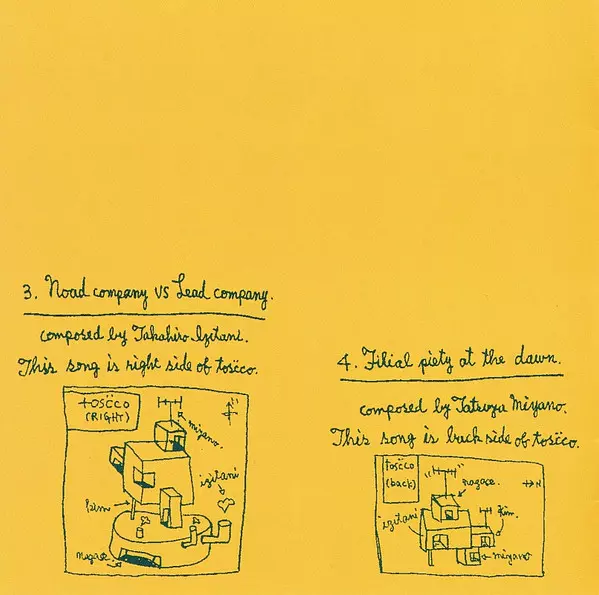 3. Noad company VS Lead company.
composed by Takahiro Izitani.
This song is right side of toscco.
toscco
(RIGHT)
miyano.
izitani
kim
nagase.
4. Filial piety at the dawn.
composed by Tatsuya Miyano.
This song is back side of toscco.
toscco
(back)
nagase.
N
izitani
kim.
miyano